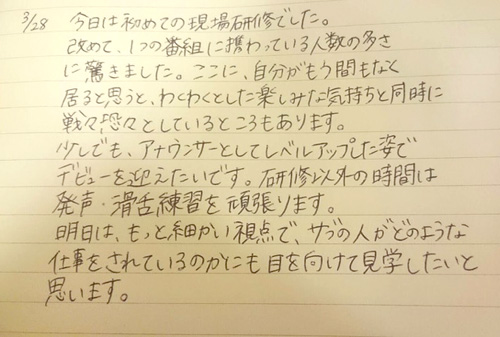 3/28 今日は初めての現場研修でした。
改めて、1つの番組に携わっている人数の多さ
に驚きました。ここに、自分がもう間もなく
居ると思うと、わくわくとした楽しみな気持ちと同時に
戦々恐々としているところもあります。
少しでも、アナウンサーとしてレベルアップした姿で
デビューを迎えたいです。研修以外の時間は
発声・滑舌練習を頑張ります。
明日は、もっと細かい視点で、サブの人がどのような
仕事をされているのかにも目を向けて見学したいと
思います。